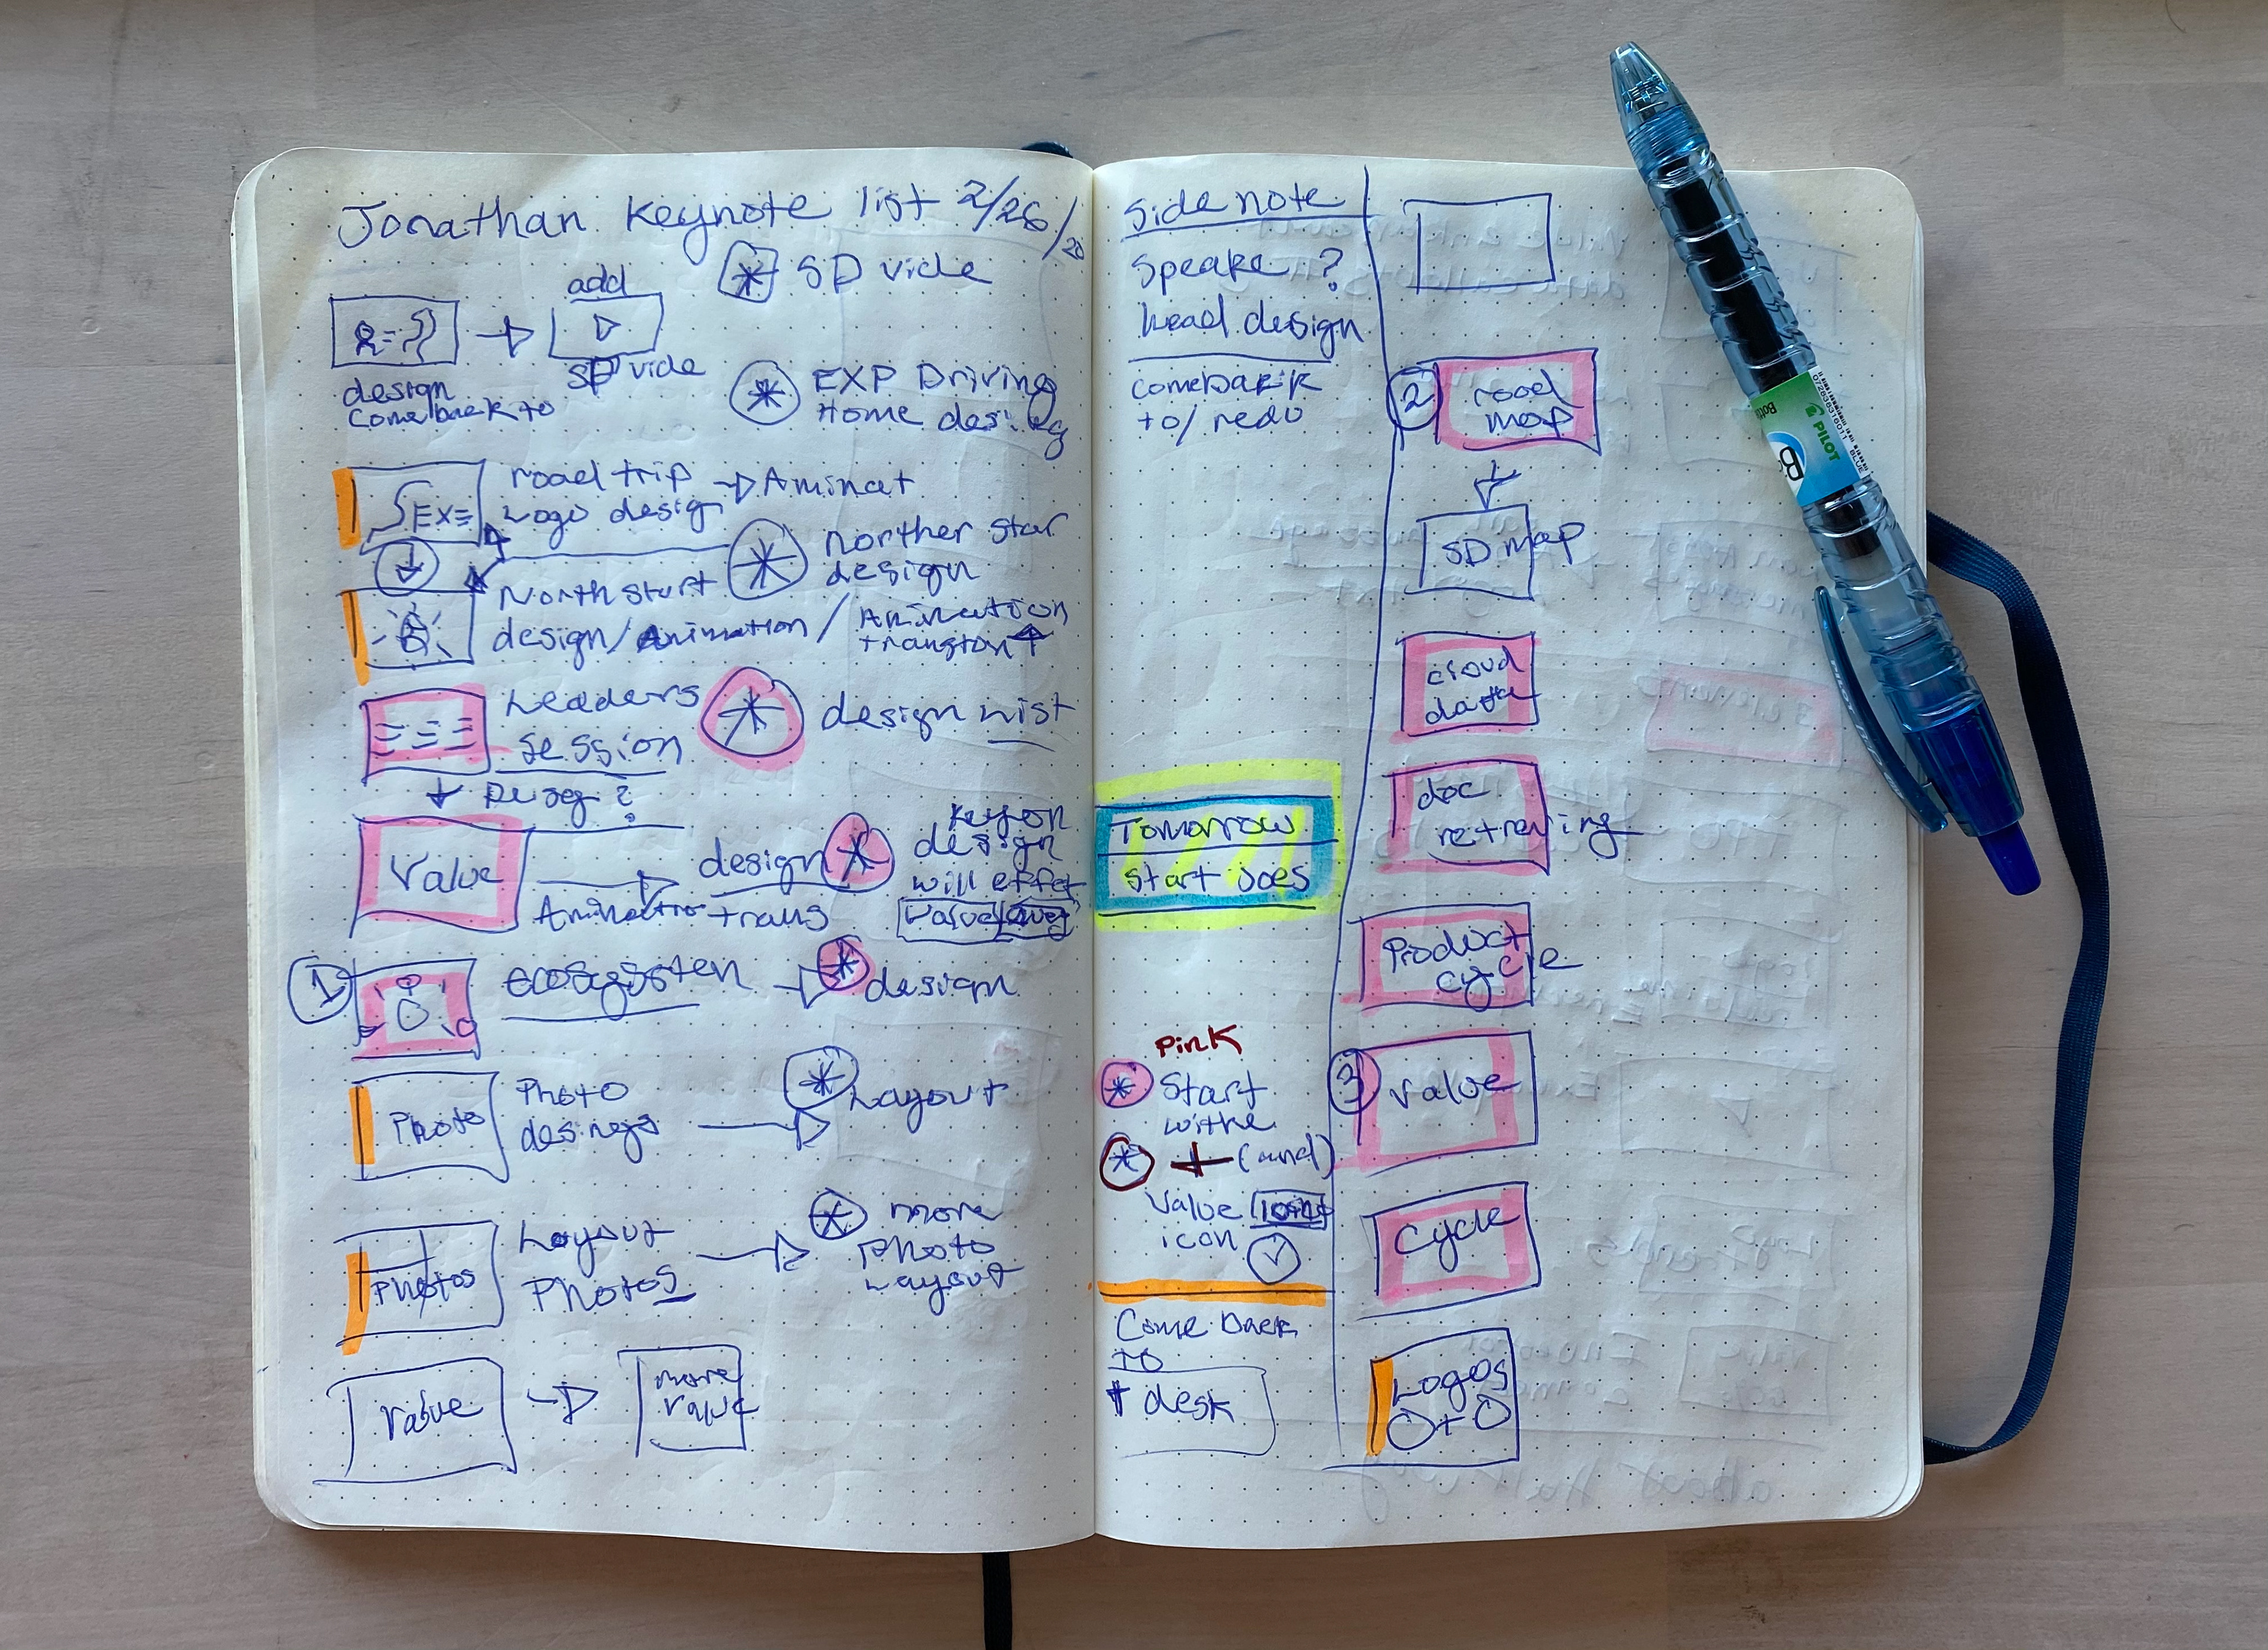 Jonathan Keynote list 2/28/20
* SD vide
add
SD vide
design
Come back to
* EXP Driving
Home design
EX
road trip → Aminat
Logo design
* Norther star
design
North start
design / Animation / Animation
* design List
Leaders
session
Value
design *
Keyon
design
will effet
Value
Animatio trans
1 ecosysten → * design
Photo
Photo
desings
* Layout
Photos
Layout
Photos
* more
Photo
Layout
Value → more
value
Side note
Speake ?
head design
come back
to/ redo
Tomorrow
Start Does
Pink
* Start
withe
* + (and)
Value
icon
Come Back
TO
desk
2 road
map
SD map
cloud
data
doc
retreving
Product
cycle
3 value
Cycle
Logos
O+O
PILOT
BLUE